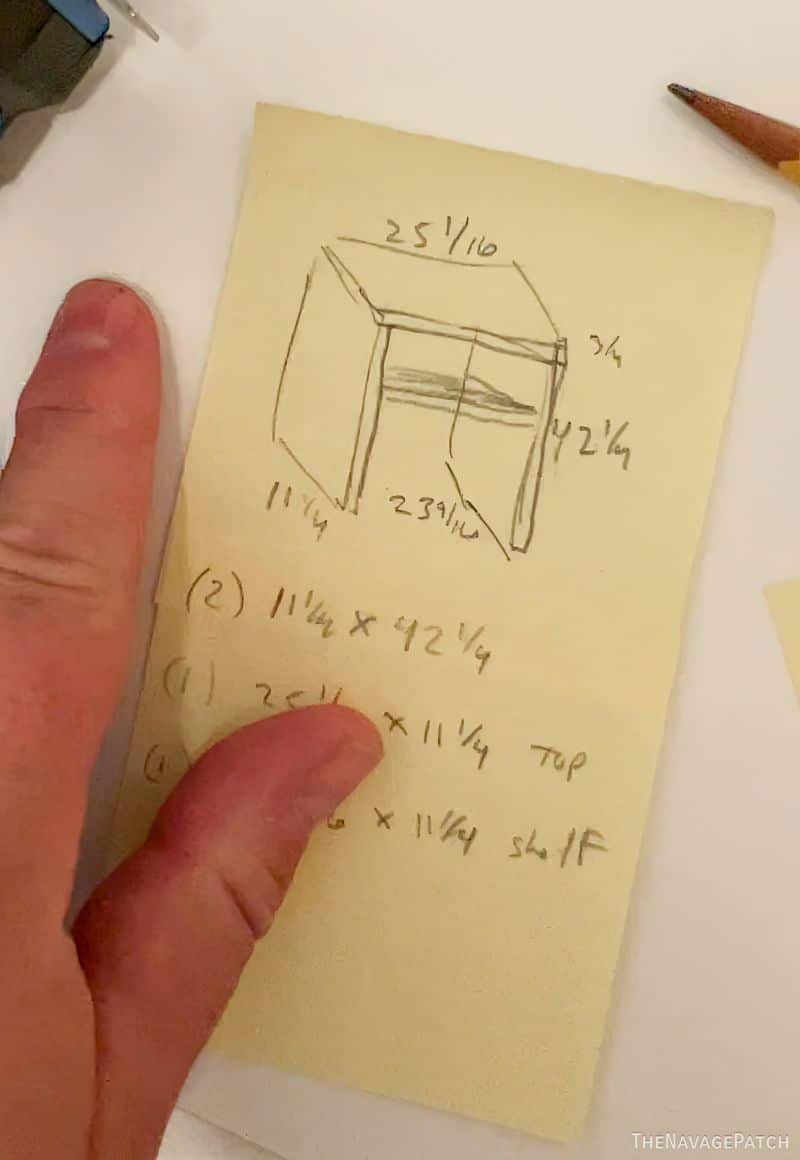 25 1/16
3/4
42 1/4
11 1/4
23 9/16
(2) 11 1/4 x 42 1/4
(1) 25 1/ x 11 1/4 TOP
(1
6 x 11 1/4 shelf
THENAVAGEPATCH